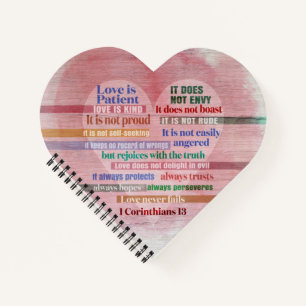 Love is
Patient
LOVE IS KIND
It is not proud
it is not self-seeking
it keeps no record of wrongs
IT DOES
NOT ENVY
It does not boast
IT IS NOT RUDE
It is not easily
angered
but rejoices with the truth
Love does not delight in evil
it always protects
always trusts
always hopes
always perseveres
Love never fails
1 Corinthians 13